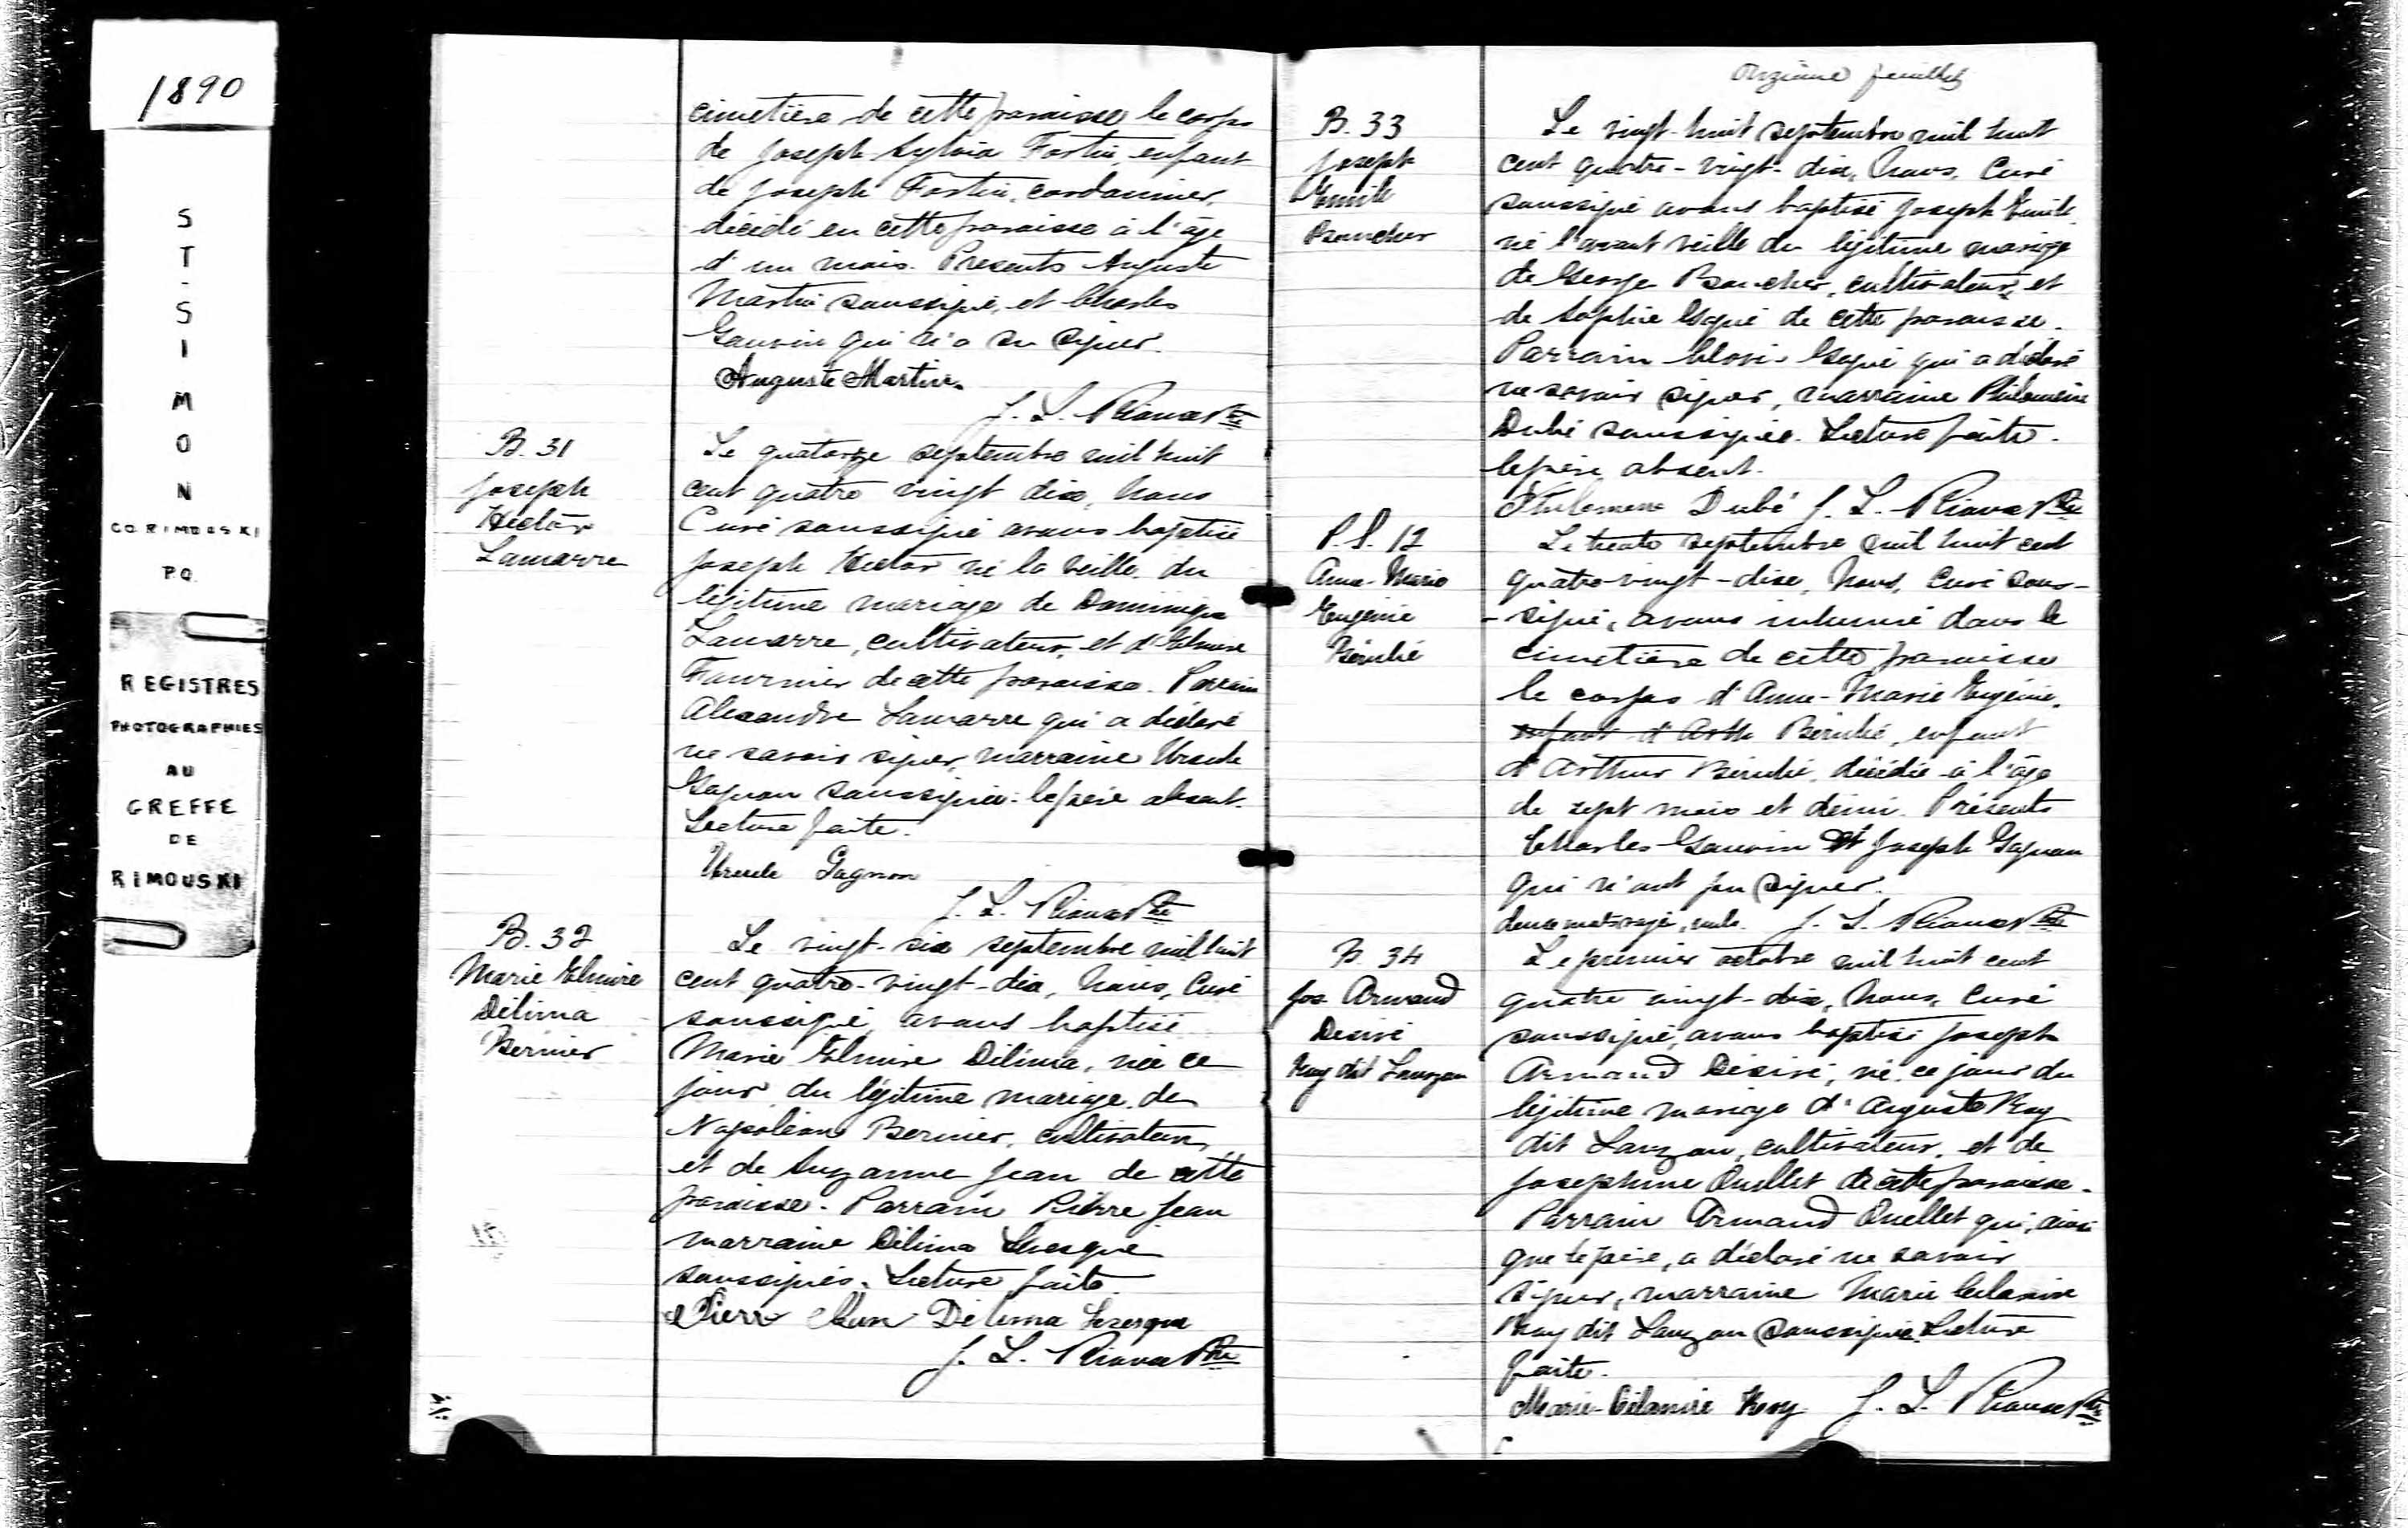 1890
ST-SIMON
CO. RIMOUSKI
P.Q.
REGISTRES
PHOTOGRAPHIES
AU
GREFFE
DE
RIMOUSKI
cimetière de cette paroisse le corps
de Joseph Sylvia Fortin enfant
de Joseph Fortin, cordonnier,
décédé en cette paroisse à l'âge
d'un mois. Présents Auguste
Martin soussigné, et Charles
Gauvin qui n'a su signer.
Auguste Martin.
J. L. Rioux Ptre
B. 31
Joseph
Hector
Lamarre
Le quatorze septembre mil huit
cent quatre vingt dix, nous
Curé soussigné avons baptisé
Joseph Hector né la veille du
légitime mariage de Dominique
Lamarre, cultivateur, et d'Elmire
Fournier de cette paroisse. Parrain
Alexandre Lamarre qui a déclaré
ne savoir signer, marraine Ursule
Gagnon soussignée: le père absent.
Lecture faite.
Ursule Gagnon
J. L. Rioux Ptre
B. 32
Marie Elmire
Délima
Bernier
Le vingt-six septembre mil huit
cent quatre-vingt-dix, nous, Curé
soussigné, avons baptisé
Marie Elmire Délima, née ce
jour, du légitime mariage de
Napoléon Bernier, cultivateur,
et de Suzanne Jean de cette
paroisse. Parrain Pierre Jean
marraine Délima Levesque
soussignés. Lecture faite.
Pierre Jean Delima Levesque
J. L. Rioux Ptre
Onzième feuillet
B. 33
Joseph
Emile
Boucher
Le vingt-huit septembre mil huit
cent quatre-vingt-dix, nous, Curé
soussigné avons baptisé Joseph Emile
né l'avant veille du légitime mariage
de George Boucher, cultivateur, et
de Sophie Gagné de cette paroisse.
Parrain Clovis Gagné qui a déclaré
ne savoir signer, marraine Philomène
Dubé soussignée. Lecture faite.
le père absent.
Philomene Dubé J. L. Rioux Ptre
P. S. 12
Anne-Marie
Eugénie
Bérubé
Le trente septembre mil huit cent
quatre-vingt-dix, Nous, Curé sous-
-signé, avons inhumé dans le
cimetière de cette paroisse
le corps d'Anne-Marie Eugénie.
enfant d'Arth Bérubé, enfant
d'Arthur Bérubé, décédée à l'âge
de sept mois et demi. Présents
Charles Gauvin et Joseph Gagnon
qui n'ont pu signer.
deux mots rayés, nuls. J. L. Rioux Ptre
B. 34
Jos. Armand
Desiré
Roy dit Lauzon
Le premier octobre mil huit cent
quatre vingt-dix, Nous, Curé
soussigné, avons baptisé Joseph
Armand Désiré, né ce jour du
légitime mariage d'Auguste Roy
dit Lauzon, cultivateur, et de
Josephine Ouellet de cette paroisse.
Parrain Armand Ouellet qui, ainsi
que le père, a déclaré ne savoir
signer, marraine Marie Célanire
Roy dit Lauzon soussignée. Lecture
faite.
Marie-Célanire Roy J. L. Rioux Ptre